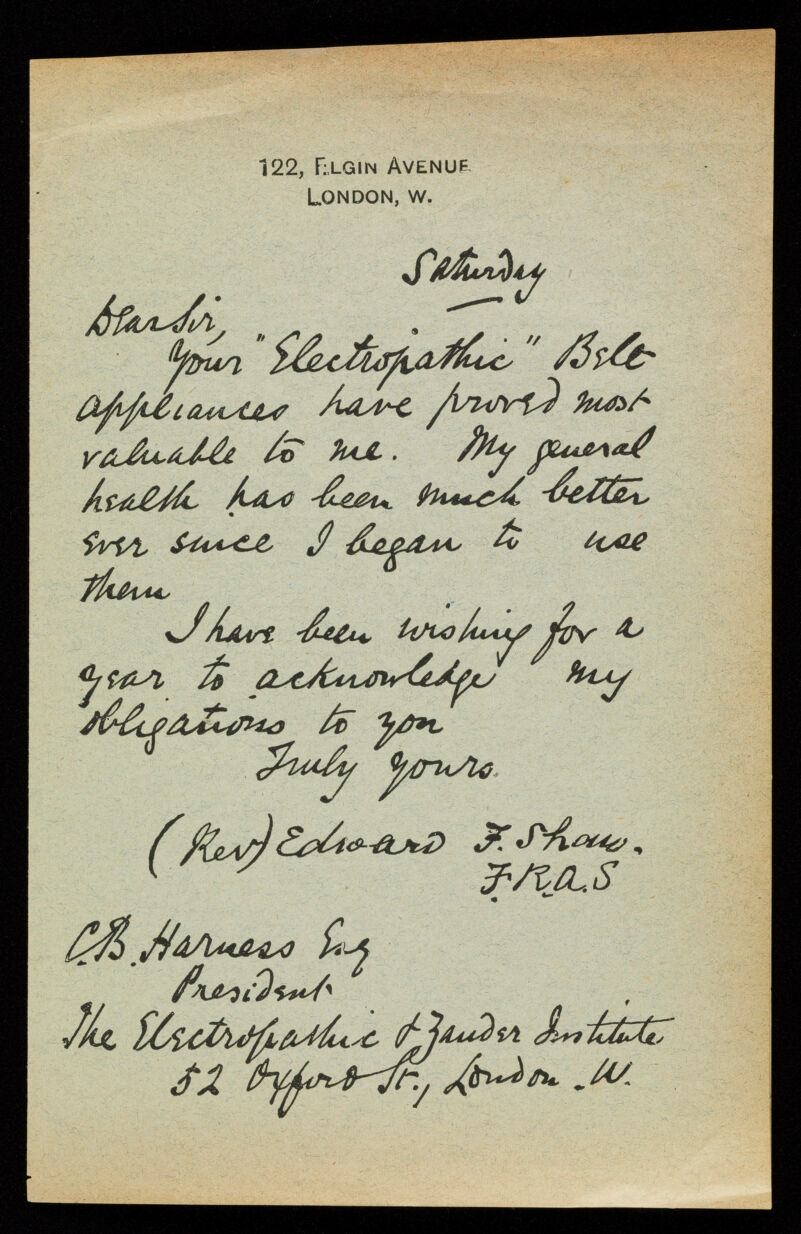 122, ELGIN AVENUE
LONDON, W.
Saturday
Dear Sir,
Your "Electropathic" Belt
appliances have proved most
valuable to me. My general
health has been much better
ever since I began to use
them
I have been wishing for a
year to acknowledge my
obligations to you
Truly yours.
(Rev) Edward F. Shaw.
F.R.A.S
C.B. Harness Esq
President
The Electropathic & Zander Institute
52 Oxford St., London. W.